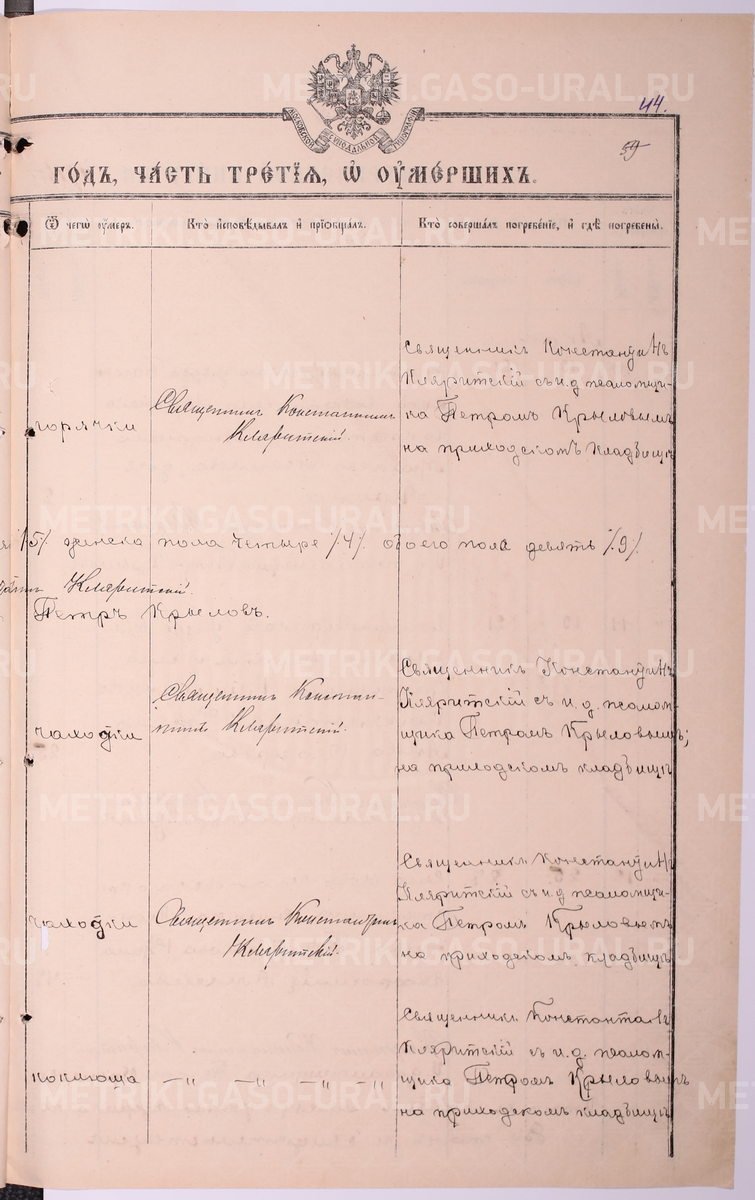 44.
59
МОСКОВСКОЙ СѴНОДАЛЬНОЙ ТИПОГРАФІИ
го́дъ, ча́сть тре́тїѧ, ѡ҆ ᲂу҆ме́ршихъ.
Ѿ чегѡ̀ ᲂу҆́меръ.
Кто̀ и҆сповѣ́дывалъ и҆ прїѡбща́лъ.
Кто̀ соверша́лъ погребе́нїе, и҆ гдѣ̀ погребены̀.
горячки
Священникъ Константинъ
Кляритскій.
Священникъ Константинъ
Кляритскій съ и.д. псаломщи-
ка Петромъ Крыловымъ
на приходскомъ кладбищѣ
5% женска пола четыре %4% обоего пола девять %9%
Кляритскій.
Петръ Крыловъ.
чахотки
Священникъ Констан-
тинъ Кляритскій.
Священникъ Константинъ
Кляритскій съ и.д. псалом-
щика Петромъ Крыловымъ;
на приходскомъ кладбищѣ
чахотки
Священникъ Константинъ
Кляритскій.
Священникъ Константинъ
Кляритскій съ и.д. псаломщи-
ка Петромъ Крыловымъ
на приходскомъ кладбищѣ
коклюша
—"— —"— —"— —"
Священникъ Константинъ
Кляритскій съ и.д. псалом-
щика Петромъ Крыловымъ
на приходскомъ кладбищѣ
METRIKI.GASO-URAL.RU